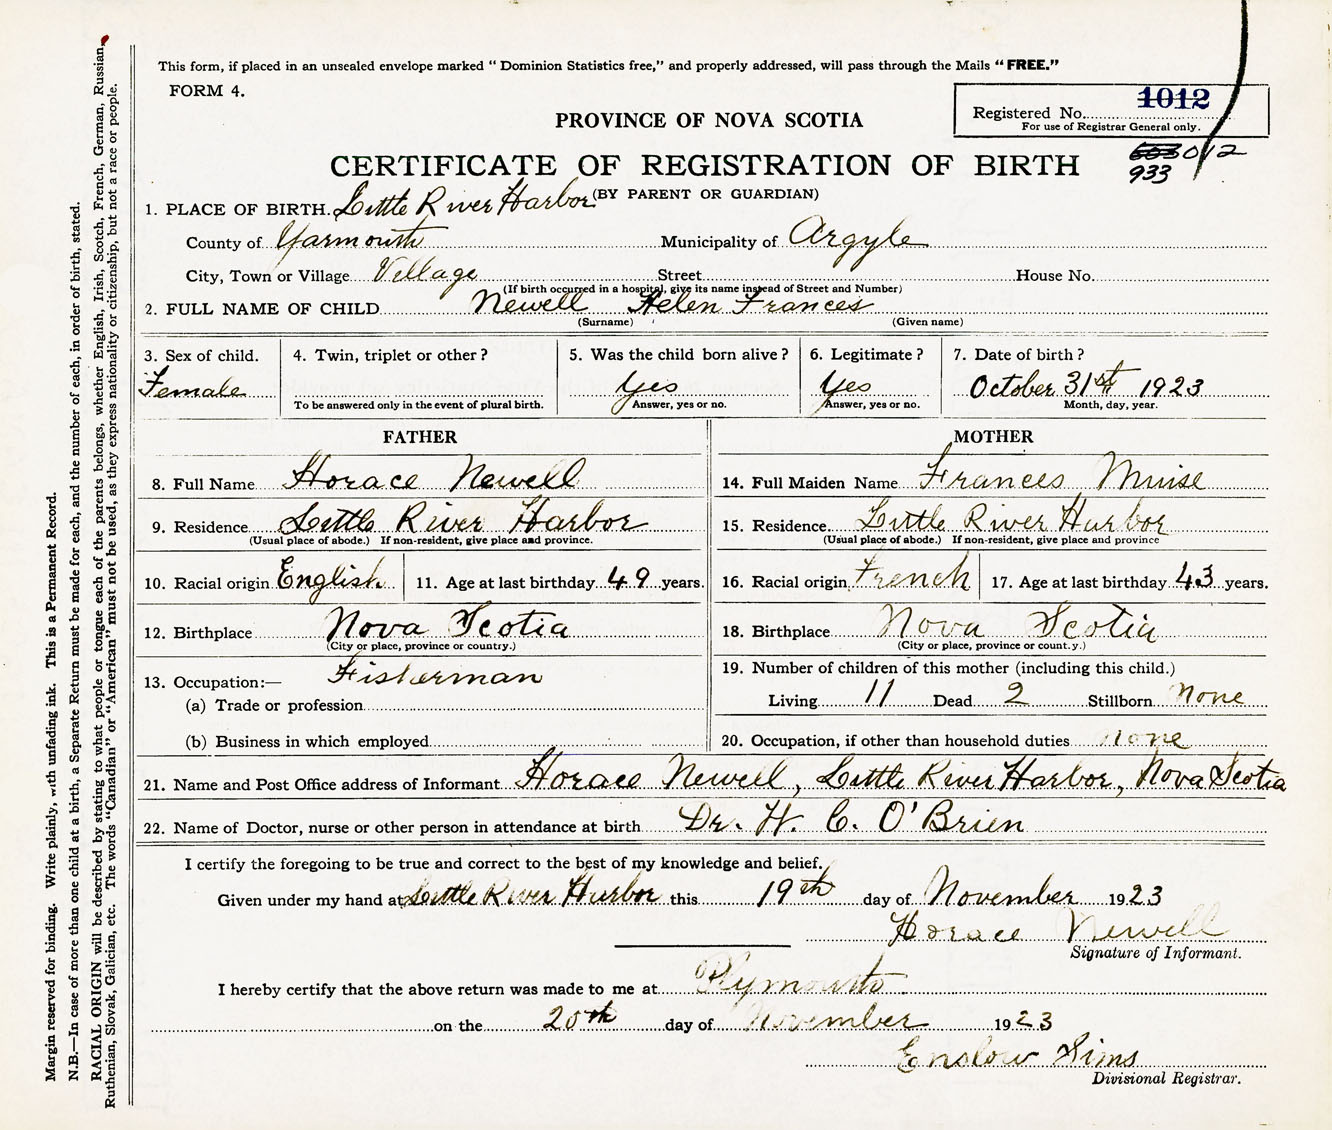 This form, if placed in an unsealed envelope marked "Dominion Statistics free," and properly addressed, will pass through the Mails "FREE."
FORM 4.
1012
Registered No.
For use of Registrar General only.
PROVINCE OF NOVA SCOTIA
603 012
933
CERTIFICATE OF REGISTRATION OF BIRTH
(BY PARENT OR GUARDIAN)
1. PLACE OF BIRTH. Little River Harbor
County of Yarmouth Municipality of Argyle
City, Town or Village Village Street House No.
(If birth occurred in a hospital, give its name instead of Street and Number)
2. FULL NAME OF CHILD Newell Helen Frances
(Surname) (Given name)
3. Sex of child. 4. Twin, triplet or other? 5. Was the child born alive? 6. Legitimate? 7. Date of birth?
Female Yes Yes October 31st 1923
To be answered only in the event of plural birth. Answer, yes or no. Answer, yes or no. Month, day, year.
FATHER
8. Full Name Horace Newell
9. Residence Little River Harbor
(Usual place of abode.) If non-resident, give place and province.
10. Racial origin English 11. Age at last birthday 49 years.
12. Birthplace Nova Scotia
(City or place, province or country.)
13. Occupation:— Fisherman
(a) Trade or profession
(b) Business in which employed
MOTHER
14. Full Maiden Name Frances Muise
15. Residence. Little River Harbor
(Usual place of abode.) If non-resident, give place and province
16. Racial origin French 17. Age at last birthday 43 years.
18. Birthplace Nova Scotia
(City or place, province or count.y.)
19. Number of children of this mother (including this child.)
Living 11 Dead 2 Stillborn none
20. Occupation, if other than household duties none
21. Name and Post Office address of Informant Horace Newell, Little River Harbor, Nova Scotia
22. Name of Doctor, nurse or other person in attendance at birth Dr. H. C. O'Brien
I certify the foregoing to be true and correct to the best of my knowledge and belief.
Given under my hand at Little River Harbor this 19th day of November 1923
Horace Newell
Signature of Informant.
I hereby certify that the above return was made to me at Plymouth
on the 20th day of November 1923
Enslow Sims
Divisional Registrar.
Margin reserved for binding. Write plainly, with unfading ink. This is a Permanent Record.
N.B.—In case of more than one child at a birth, a Separate Return must be made for each, and the number of each, in order of birth, stated.
RACIAL ORIGIN will be described by stating to what people or tongue each of the parents belongs, whether English, Irish, Scotch, French, German, Russian,
Ruthenian, Slovak, Galician, etc. The words "Canadian" or "American" must not be used, as they express nationality or citizenship, but not a race or people.